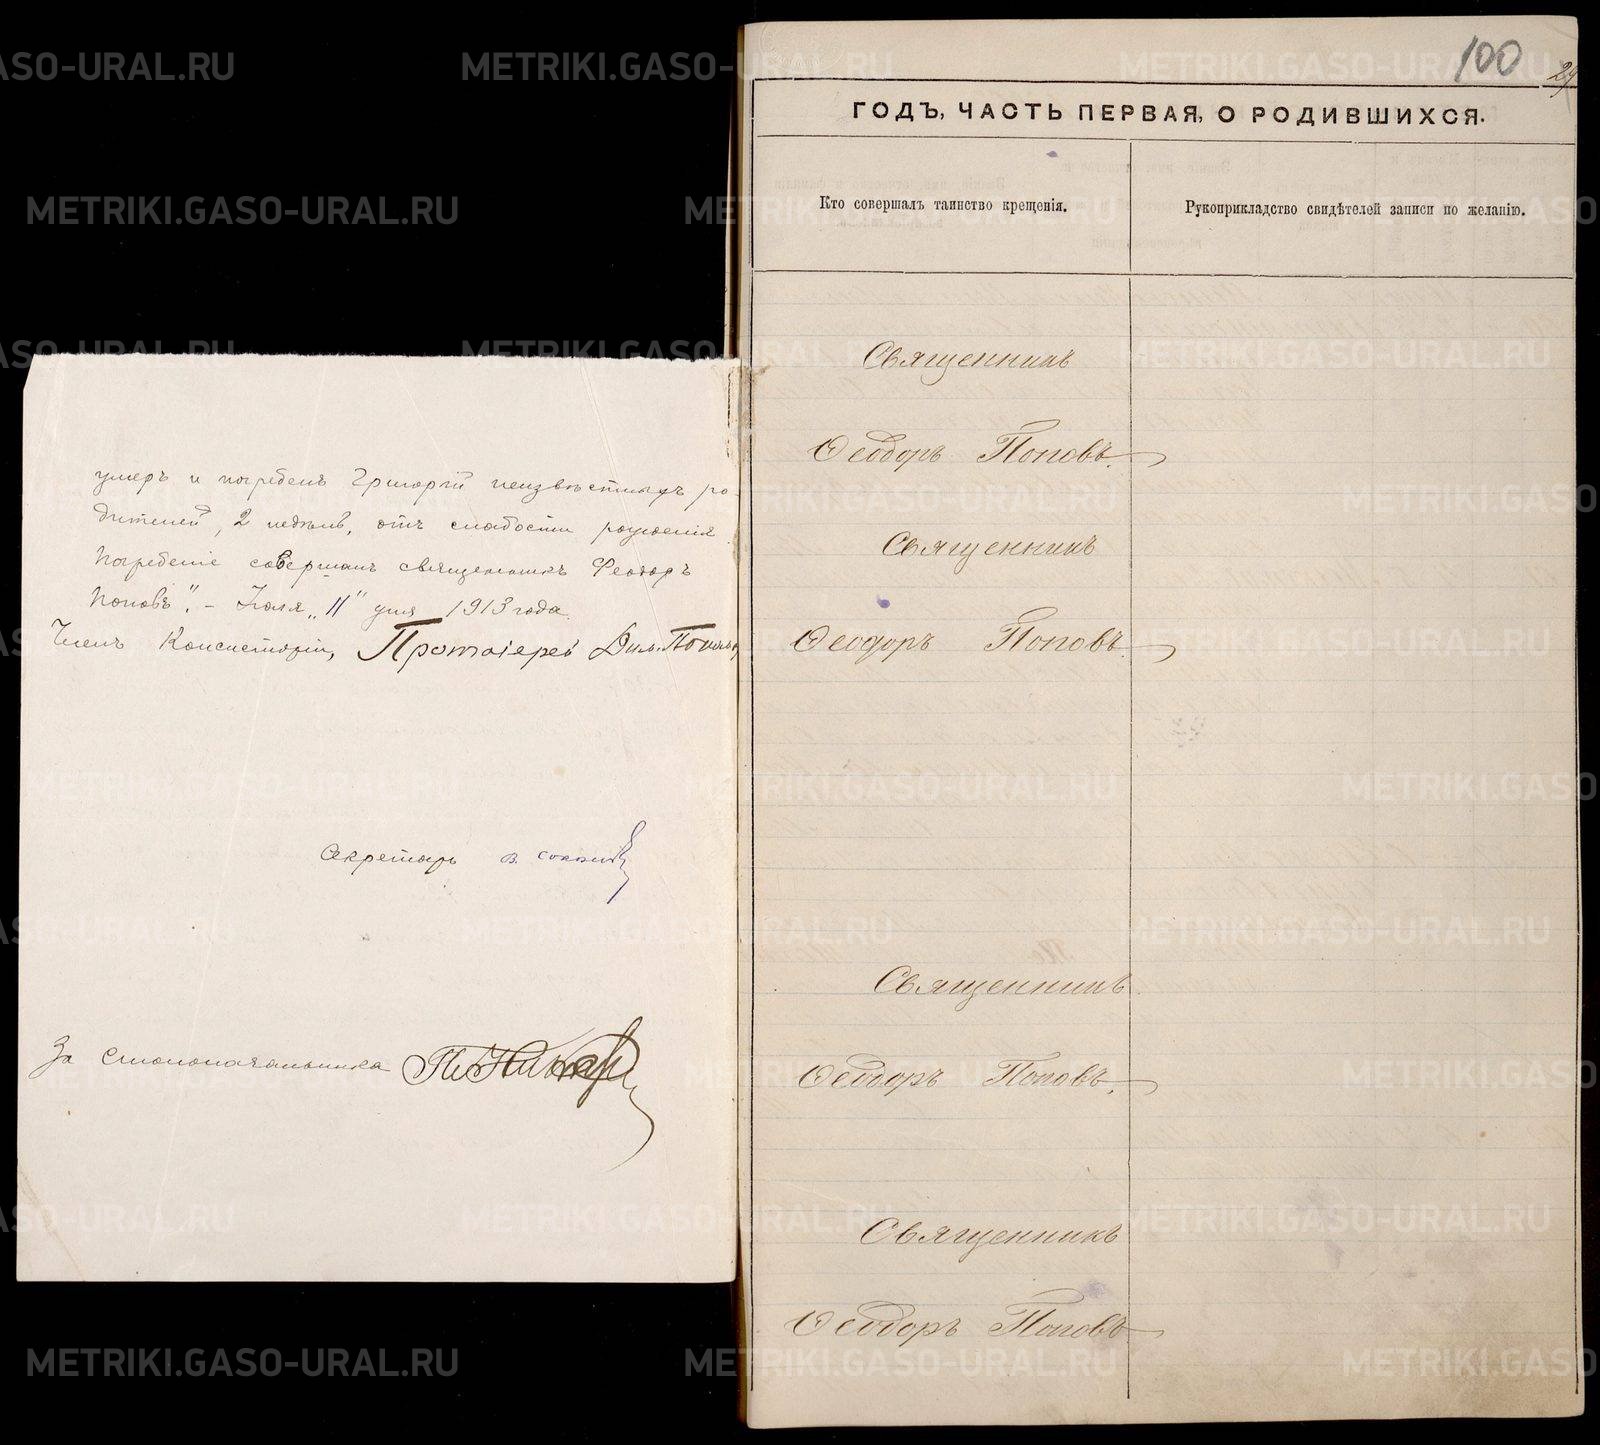 умеръ и погребенъ Григорій неизвѣстныхъ ро-
дителей, 2 недѣль, отъ слабости рожденія.
Погребеніе совершалъ священникъ Феодоръ
Поповъ". – Іюля „11" дня 1913 года.
Членъ Консисторіи, Протоіерей
Секретарь
За столоначальника
100
29
ГОДЪ, ЧАСТЬ ПЕРВАЯ, О РОДИВШИХСЯ.
Кто совершалъ таинство крещенія.
Рукоприкладство свидѣтелей записи по желанію.
Священникъ
Ѳеодоръ Поповъ.
Священникъ
Ѳеодоръ Поповъ.
Священникъ
Ѳеодоръ Поповъ.
Священникъ
Ѳеодоръ Поповъ
METRIKI.GASO-URAL.RU